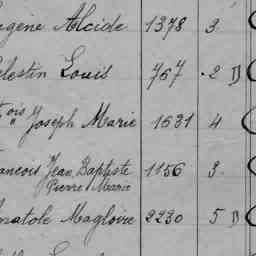 ugène Alcide 1378 3
élestin Louis 767 2 D
çois Joseph Marie 1631 4
rancois Jean Baptiste 1156 3
Pierre Marie
natole Magloire 2230 5 D